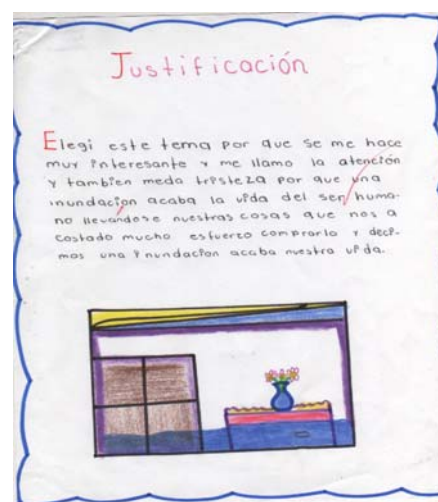 Justificación
Elegi este tema por que se me hace
muy interesante y me llamo la atención
y tambien meda tristeza por que una
inundacion acaba la vida del ser huma-
no llevándose nuestras cosas que nos a
costado mucho esfuerzo comprarlo y deci-
mos una inundacion acaba nuestra vida.